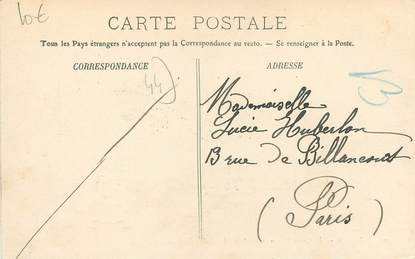 10 €
CARTE POSTALE
Tous les Pays étrangers n'acceptent pas la Correspondance au recto. — Se renseigner à la Poste.
CORRESPONDANCE
ADRESSE
44
Mademoiselle
Lucie Huberlon
13 rue de Billancourt
(Paris)